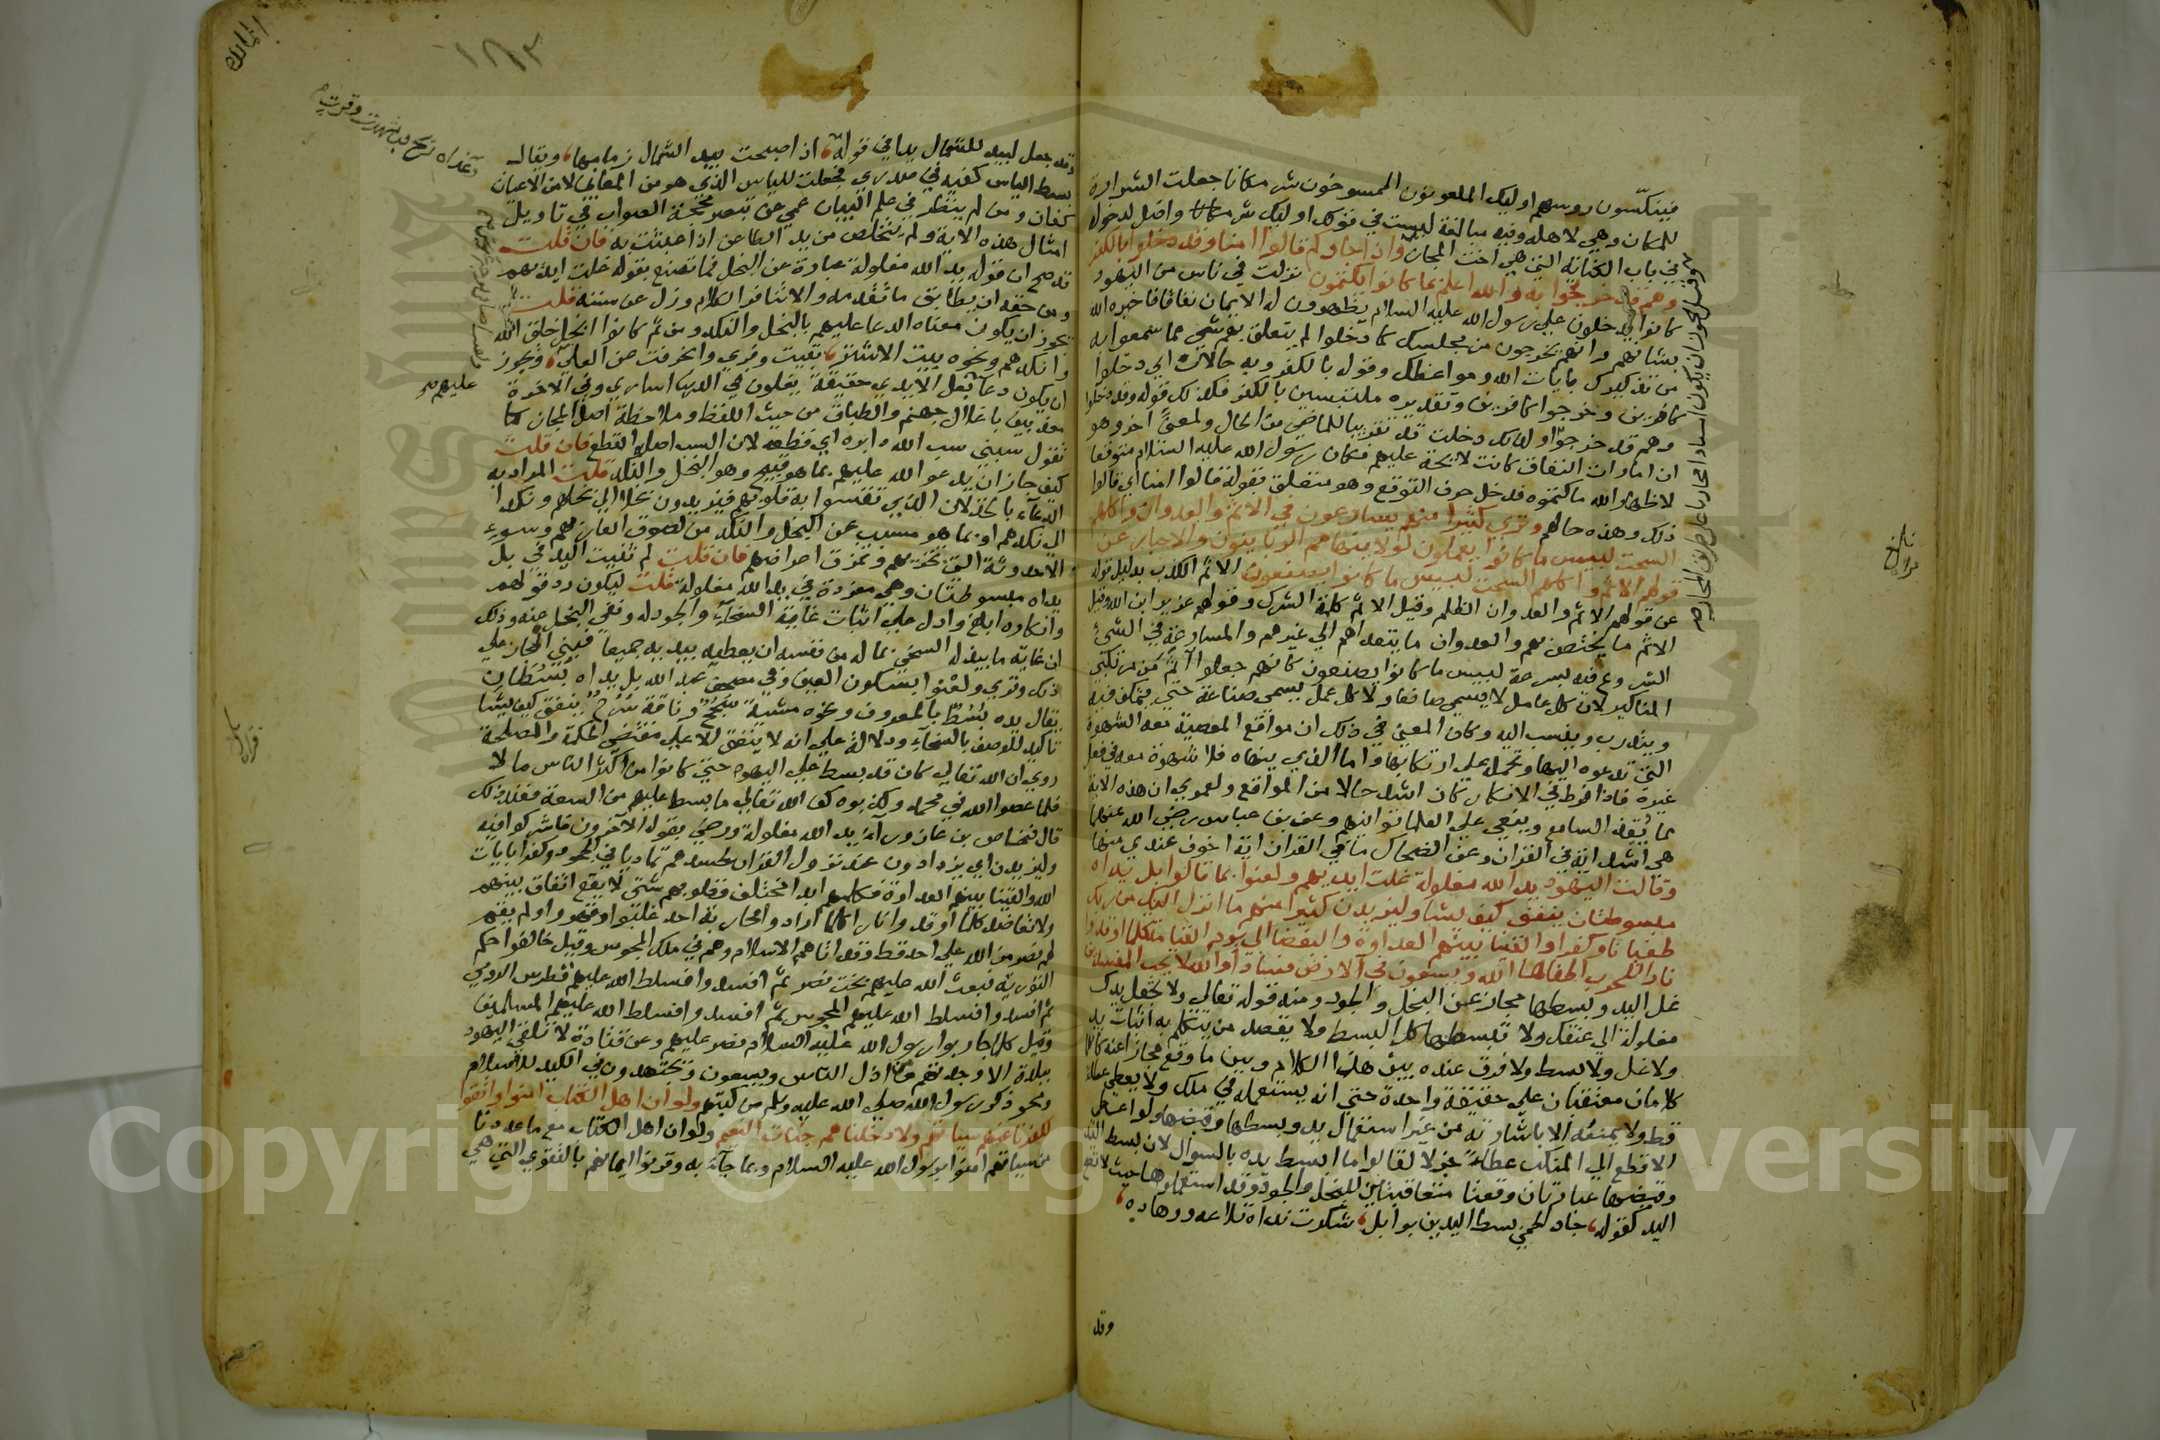 فينكسون روسهم اوليك الملعونون الممسوخون شر مكانا جعلت الشرارة
للمكان وهي لاهله وفيه مبالغة ليست في قولك اوليك شر واضل لدخوله
في باب الكناية التي هي اخت المجاز واذا جاوكم قالوا امنا وقد دخلوا بالكفر
وهم قد خرجوا به والله اعلم بما كانوا يكتمون نزلت في ناس من اليهود
كانوا يدخلون علي رسول الله عليه السلام يظهرون له الايمان نفاقا فاخبره الله
بشانهم وانهم يخرجون من مجلسك كما دخلوا لم يتعلق بهم شي مما سمعوا به
من تذكيرك بايات الله ومواعظك وقوله بالكفر وبه حالان اي دخلوا
كافرين وخرجوا كافرين وتقديره ملتبسين بالكفر فكذلك قوله وقد دخلوا
وهم قد خرجوا ولذلك دخلت قد تقريبا للماضي من الحال ولمعني اخر وهو
ان امارات النفاق كانت لايحة عليهم فكان رسول الله عليه السلام متوقعا
لاظهار الله ما كتموه فدخل حرف التوقع وهو متعلق بقوله قالوا امنا اي قالوا
ذلك وهذه حالهم وتري كثيرا منهم يسارعون في الاثم والعدوان واكلهم
السحت لبيس ما كانوا يعملون لولا ينهاهم الربانيون والاحبار عن
قولهم الاثم واكلهم السحت لبيس ما كانوا يصنعون الاثم الكذب بدليل قوله
عن قولهم الاثم والعدوان الظلم وقيل الاثم كلمة الشرك وقولهم عزير ابن الله وقيل
الاثم ما يختص بهم والعدوان ما يتعداهم الي غيرهم والمسارعة في الشي
الشروع فيه بسرعة لبيس ما كانوا يصنعون كانهم جعلوا آثم من مرتكبي
المناكير لان كل عامل لا يسمي صانعا ولا كل عمل يسمي صناعة حتي يتمكن فيه
ويتدرب وينسب اليه وكان المعني في ذلك ان مواقع المعصية معه الشهوة
التي تدعوه اليها وتحمله علي ارتكابها واما الذي ينهاه فلا شهوة معه في فعل
غيره فاذا فرط في الانكار كان اشد حالا من المواقع ولعمري ان هذه الاية
مما يقذ السامع وينعي علي العلماء توانيهم وعن ابن عباس رضي الله عنهما
هي اشد اية في القران وعن الضحاك ما في القران اية اخوف عندي منها
وقالت اليهود يد الله مغلولة غلت ايديهم ولعنوا بما قالوا بل يداه
مبسوطتان ينفق كيف يشا وليزيدن كثيرا منهم ما انزل اليك من ربك
طغيانا وكفرا والقينا بينهم العداوة والبغضا الي يوم القيامة كلما اوقدوا
نارا للحرب اطفاها الله ويسعون في الارض فسادا والله لا يحب المفسدين
غل اليد وبسطها مجاز عن البخل والجود ومنه قوله تعالي ولا تجعل يدك
مغلولة الي عنقك ولا تبسطها كل البسط ولا يقصد من يتكلم به اثبات يد
ولا غل ولا بسط ولا فرق عنده بين هذا الكلام وبين ما وقع مجازا عنه كانهما
كلامان معتقبان علي حقيقة واحدة حتي انه يستعمله في ملك ولا يعطي عطاء
قط ولا يمنعه الا باشارته من غير استعمال يد وبسطها وقبضها ولو اعطي
الاقطع الي المنكب عطاء جزلا لقالوا ما ابسط يده بالنوال لان بسط اليد
وقبضها عبارتان وقعتا متعاقبتين للبخل والجود وقد استعملوها حيث لا تصح
اليد كقوله جاد الحمي بسط اليدين بوابل شكرت نداه تلاعه ووهاده
وقد
وقد جعل لبيد للشمال يدا في قوله اذ اصبحت بيد الشمال زمامها ويقال
بسط الياس كفيه في صدري فجعلت للياس الذي هو من المعاني لا من الاعيان
كفان ومن لم ينظر في علم البيان عمي عن تبصر محجة الصواب في تاويل
امثال هذه الاية ولم يتخلص من يد الطاعن اذا عبثت به فان قلت
قد صح ان قوله يد الله مغلولة عبارة عن البخل فما تصنع بقوله غلت ايديهم
ومن حقه ان يطابق ما تقدمه والا تنافر الكلام وزل عن سننه قلت
يجوز ان يكون معناه الدعا عليهم بالبخل والنكد ومن ثم كانوا ابخل خلق الله
وانكدهم ونحوه بيت الاشتر بقيت وفري وانحرفت عن العلي ويجوز
ان يكون دعا بغل الايدي حقيقة يغلون في الدنيا اساري وفي الاخرة
معذبين باغلال جهنم والطباق من حيث اللفظ وملاحظة اصل المجاز كما
تقول سبني سب الله دابره اي قطعه لان السب اصله القطع فان قلت
كيف جاز ان يدعو الله عليهم بما هو قبيح وهو البخل والنكد قلت المراد به
الدعاء بالخذلان الذي تقسوا به قلوبهم فيزيدون بخلا الي بخلهم ونكدا
الي نكدهم او بما هو مسبب عن البخل والنكد من لصوق العار بهم وسوء
الاحدوثة التي تخزيهم وتمزق اعراضهم فان قلت لم ثنيت اليد في بل
يداه مبسوطتان وهي مفردة في يد الله مغلولة قلت ليكون رد قولهم
وانكاره ابلغ وادل علي اثبات غاية السخاء والجود له ونفي البخل عنه وذلك
ان غاية ما يبذله السخي بما له من نفسه ان يعطيه بيديه جميعا فبني المجاز علي
ذلك وقري ولعنوا بسكون العين وفي مصحف عبد الله بل يداه بسطان
يقال يده بسط بالمعروف ونحوه مشية سجح وناقة سرح ينفق كيف يشا
تاكيد للوصف بالسخاء ودلالة علي انه لا ينفق الا علي مقتضي الحكمة والمصلحة
روي ان الله تعالي كان قد بسط علي اليهود حتي كانوا من اكثر الناس مالا
فلما عصوا الله في محمد وكذبوه كف الله تعالي ما بسط عليهم من السعة فعند ذلك
قال فنحاص بن عازوراء يد الله مغلولة ورضي بقوله الاخرون فاشركوا فيه
وليزيدن اي يزدادون عند نزول القران لحسدهم تماديا في الجحود وكفرا بايات
الله والقينا بينهم العداوة فكلمهم ابدا مختلف وقلوبهم شتي لا يقع اتفاق بينهم
ولا تعاضد كلما اوقدوا نارا كلما ارادوا محاربة احد غلبوا وقهروا ولم يقم
لهم نصر من الله علي احد قط وقد اتاهم الاسلام وهم في ملك المجوس وقيل خالفوا حكم
التورية فبعث الله عليهم بخت نصر ثم افسدوا فسلط الله عليهم فطرس الرومي
ثم افسدوا فسلط الله عليهم المجوس ثم افسدوا فسلط الله عليهم المسلمين
وقيل كلما حاربوا رسول الله عليه السلام نصر عليهم وعن قتادة لا تلقي اليهود
ببلدة الا وجدتهم من اذل الناس ويسعون ويجتهدون في الكيد للاسلام
ومحو ذكر رسول الله صلي الله عليه وسلم من كتبهم ولو ان اهل الكتاب امنوا واتقوا
لكفرنا عنهم سياتهم ولادخلناهم جنات النعيم ولو ان اهل الكتاب مع ما عددنا
من سياتهم امنوا برسول الله عليه السلام وبما جاء به وقرنوا ايمانهم بالتقوي التي هي
Copyright © King Saud University